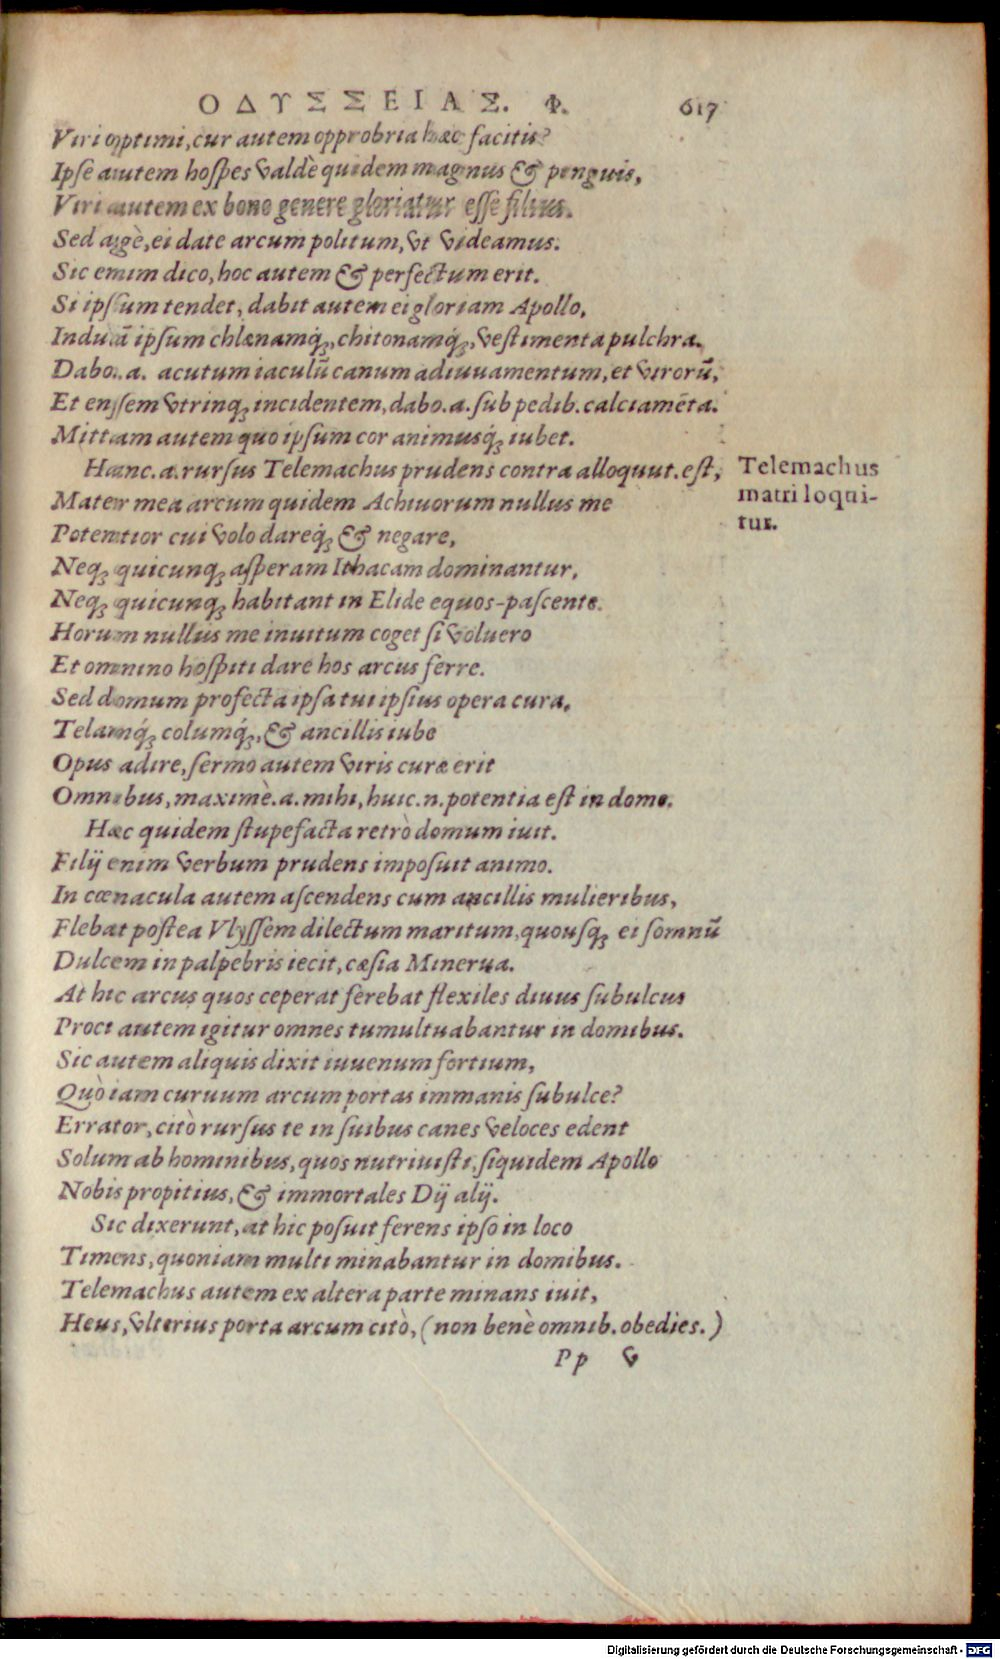 ΟΔΥΣΣΕΙΑΣ. Φ. 617
Viri optimi, cur autem opprobria hæc facitis?
Ipse autem hospes valdè quidem magnus & pinguis,
Viri autem ex bono genere gloriatur esse filius.
Sed agè, ei date arcum politum, vt videamus.
Sic enim dico, hoc autem & perfectum erit.
Si ipsum tendet, dabit autem ei gloriam Apollo,
Induā ipsum chlænamq́;, chitonamq́;, vestimenta pulchra.
Dabo. a. acutum iaculū canum adiuuamentum, et virorū,
Et ensem vtrinq; incidentem, dabo. a. sub pedib. calciamēta.
Mittam autem quo ipsum cor animusq́; iubet.
Hanc. a. rursus Telemachus prudens contra alloquut. est,
Mater mea arcum quidem Achiuorum nullus me
Potentior cui volo dareq́; & negare,
Neq; quicunq; asperam Ithacam dominantur,
Neq; quicunq; habitant in Elide equos-pascente.
Horum nullus me inuitum coget si voluero
Et omnino hospiti dare hos arcus ferre.
Sed domum profecta ipsa tui ipsius opera cura,
Telamq́; columq́;, & ancillis iube
Opus adire, sermo autem viris curæ erit
Omnibus, maximè. a. mihi, huic. n. potentia est in domo.
Hæc quidem stupefacta retrò domum iuit.
Filij enim verbum prudens imposuit animo.
In cœnacula autem ascendens cum ancillis mulieribus,
Flebat postea Vlyssem dilectum maritum, quousq; ei somnū
Dulcem in palpebris iecit, cæsia Minerua.
At hic arcus quos ceperat ferebat flexiles diuus subulcus
Proci autem igitur omnes tumultuabantur in domibus.
Sic autem aliquis dixit iuuenum fortium,
Quò iam curuum arcum portas immanis subulce?
Errator, citò rursus te in suibus canes veloces edent
Solum ab hominibus, quos nutriuisti, siquidem Apollo
Nobis propitius, & immortales Dij alij.
Sic dixerunt, at hic posuit ferens ipso in loco
Timens, quoniam multi minabantur in domibus.
Telemachus autem ex altera parte minans iuit,
Heus, vlterius porta arcum citò, (non benè omnib. obedies.)
Pp v
Telemachus
matri loqui-
tur.
Digitalisierung gefördert durch die Deutsche Forschungsgemeinschaft - DFG